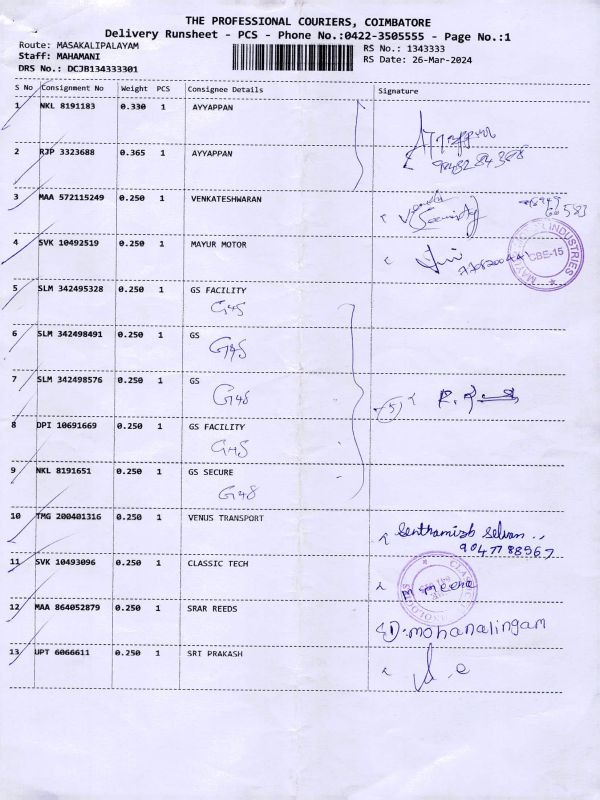 THE PROFESSIONAL COURIERS, COIMBATORE
Delivery Runsheet - PCS - Phone No.:0422-3505555 - Page No.:1
Route: MASAKALIPALAYAM
RS No.: 1343333
Staff: MAHAMANI
RS Date: 26-Mar-2024
DRS No.: DCJB134333301
S No Consignment No Weight PCS Consignee Details Signature
1 NKL 8191183 0.330 1 AYYAPPAN
2 RJP 3323688 0.365 1 AYYAPPAN
3 MAA 572115249 0.250 1 VENKATESHWARAN
Security
4 SVK 10492519 0.250 1 MAYUR MOTOR
INDUSTRIES
CBE-15
5 SLM 342495328 0.250 1 GS FACILITY
G4S
6 SLM 342498491 0.250 1 GS
G4S
7 SLM 342498576 0.250 1 GS
G4S
(5)
8 DPI 10691669 0.250 1 GS FACILITY
G4S
9 NKL 8191651 0.250 1 GS SECURE
G4S
10 TMG 200401316 0.250 1 VENUS TRANSPORT
Senthamizh Selvan
9047788567
11 SVK 10493096 0.250 1 CLASSIC TECH
M Meena
12 MAA 864052879 0.250 1 SRAR REEDS
D.mohanalingam
13 UPT 6066611 0.250 1 SRT PRAKASH